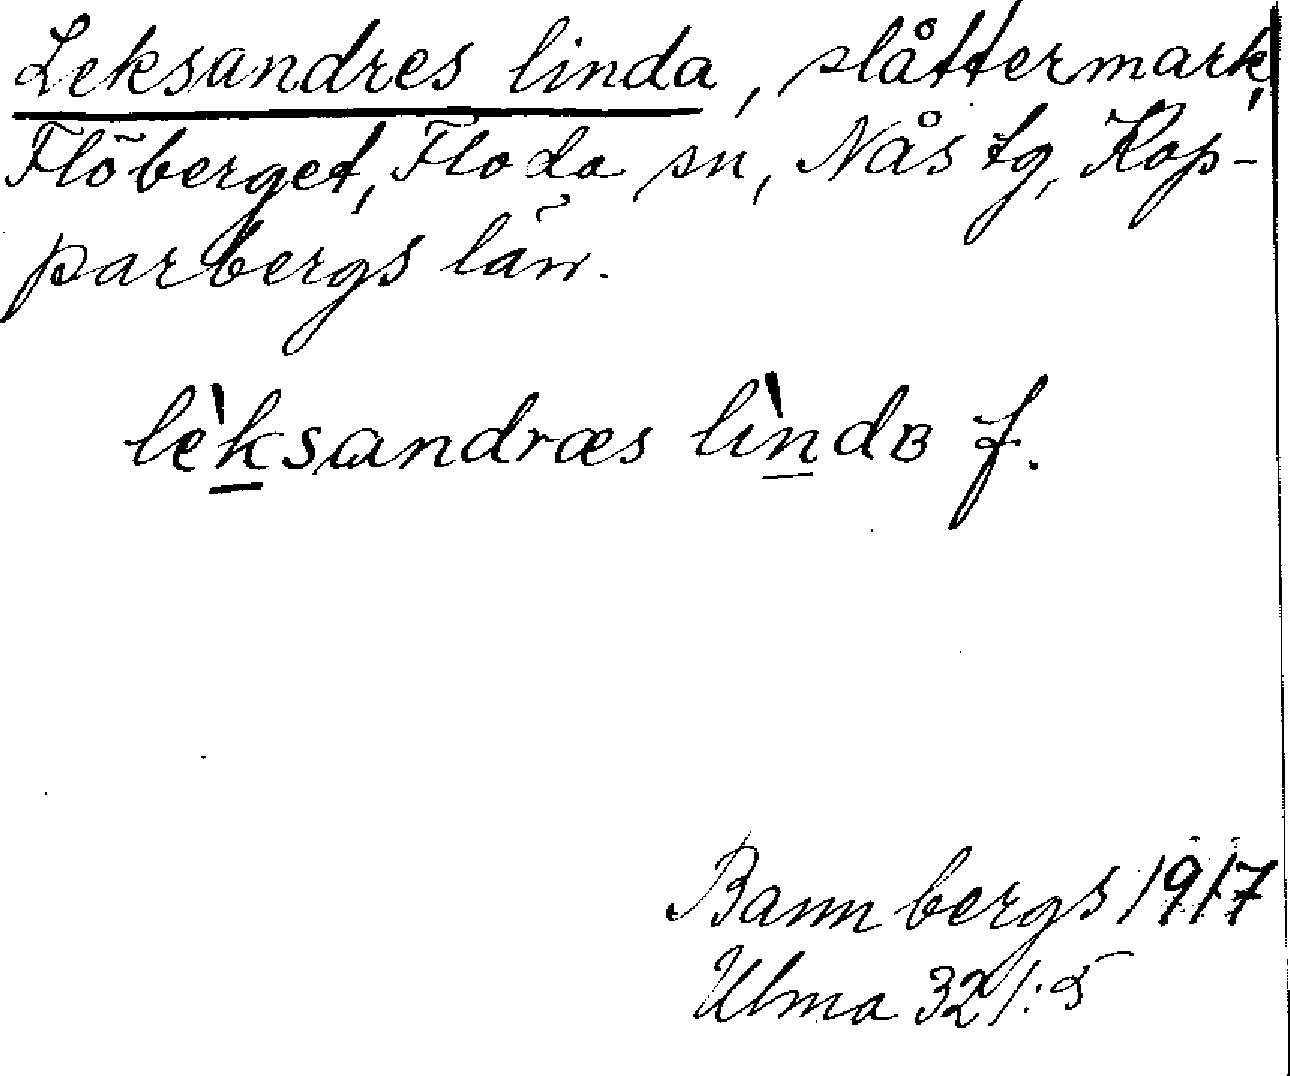 Leksandres linda, slåttermark,
Flöberget, Floda sn, Nås tg, Kop-
parbergs län.
lèksandræs lìndʙ f.
Bannbergs 1917
Ulma 321:5